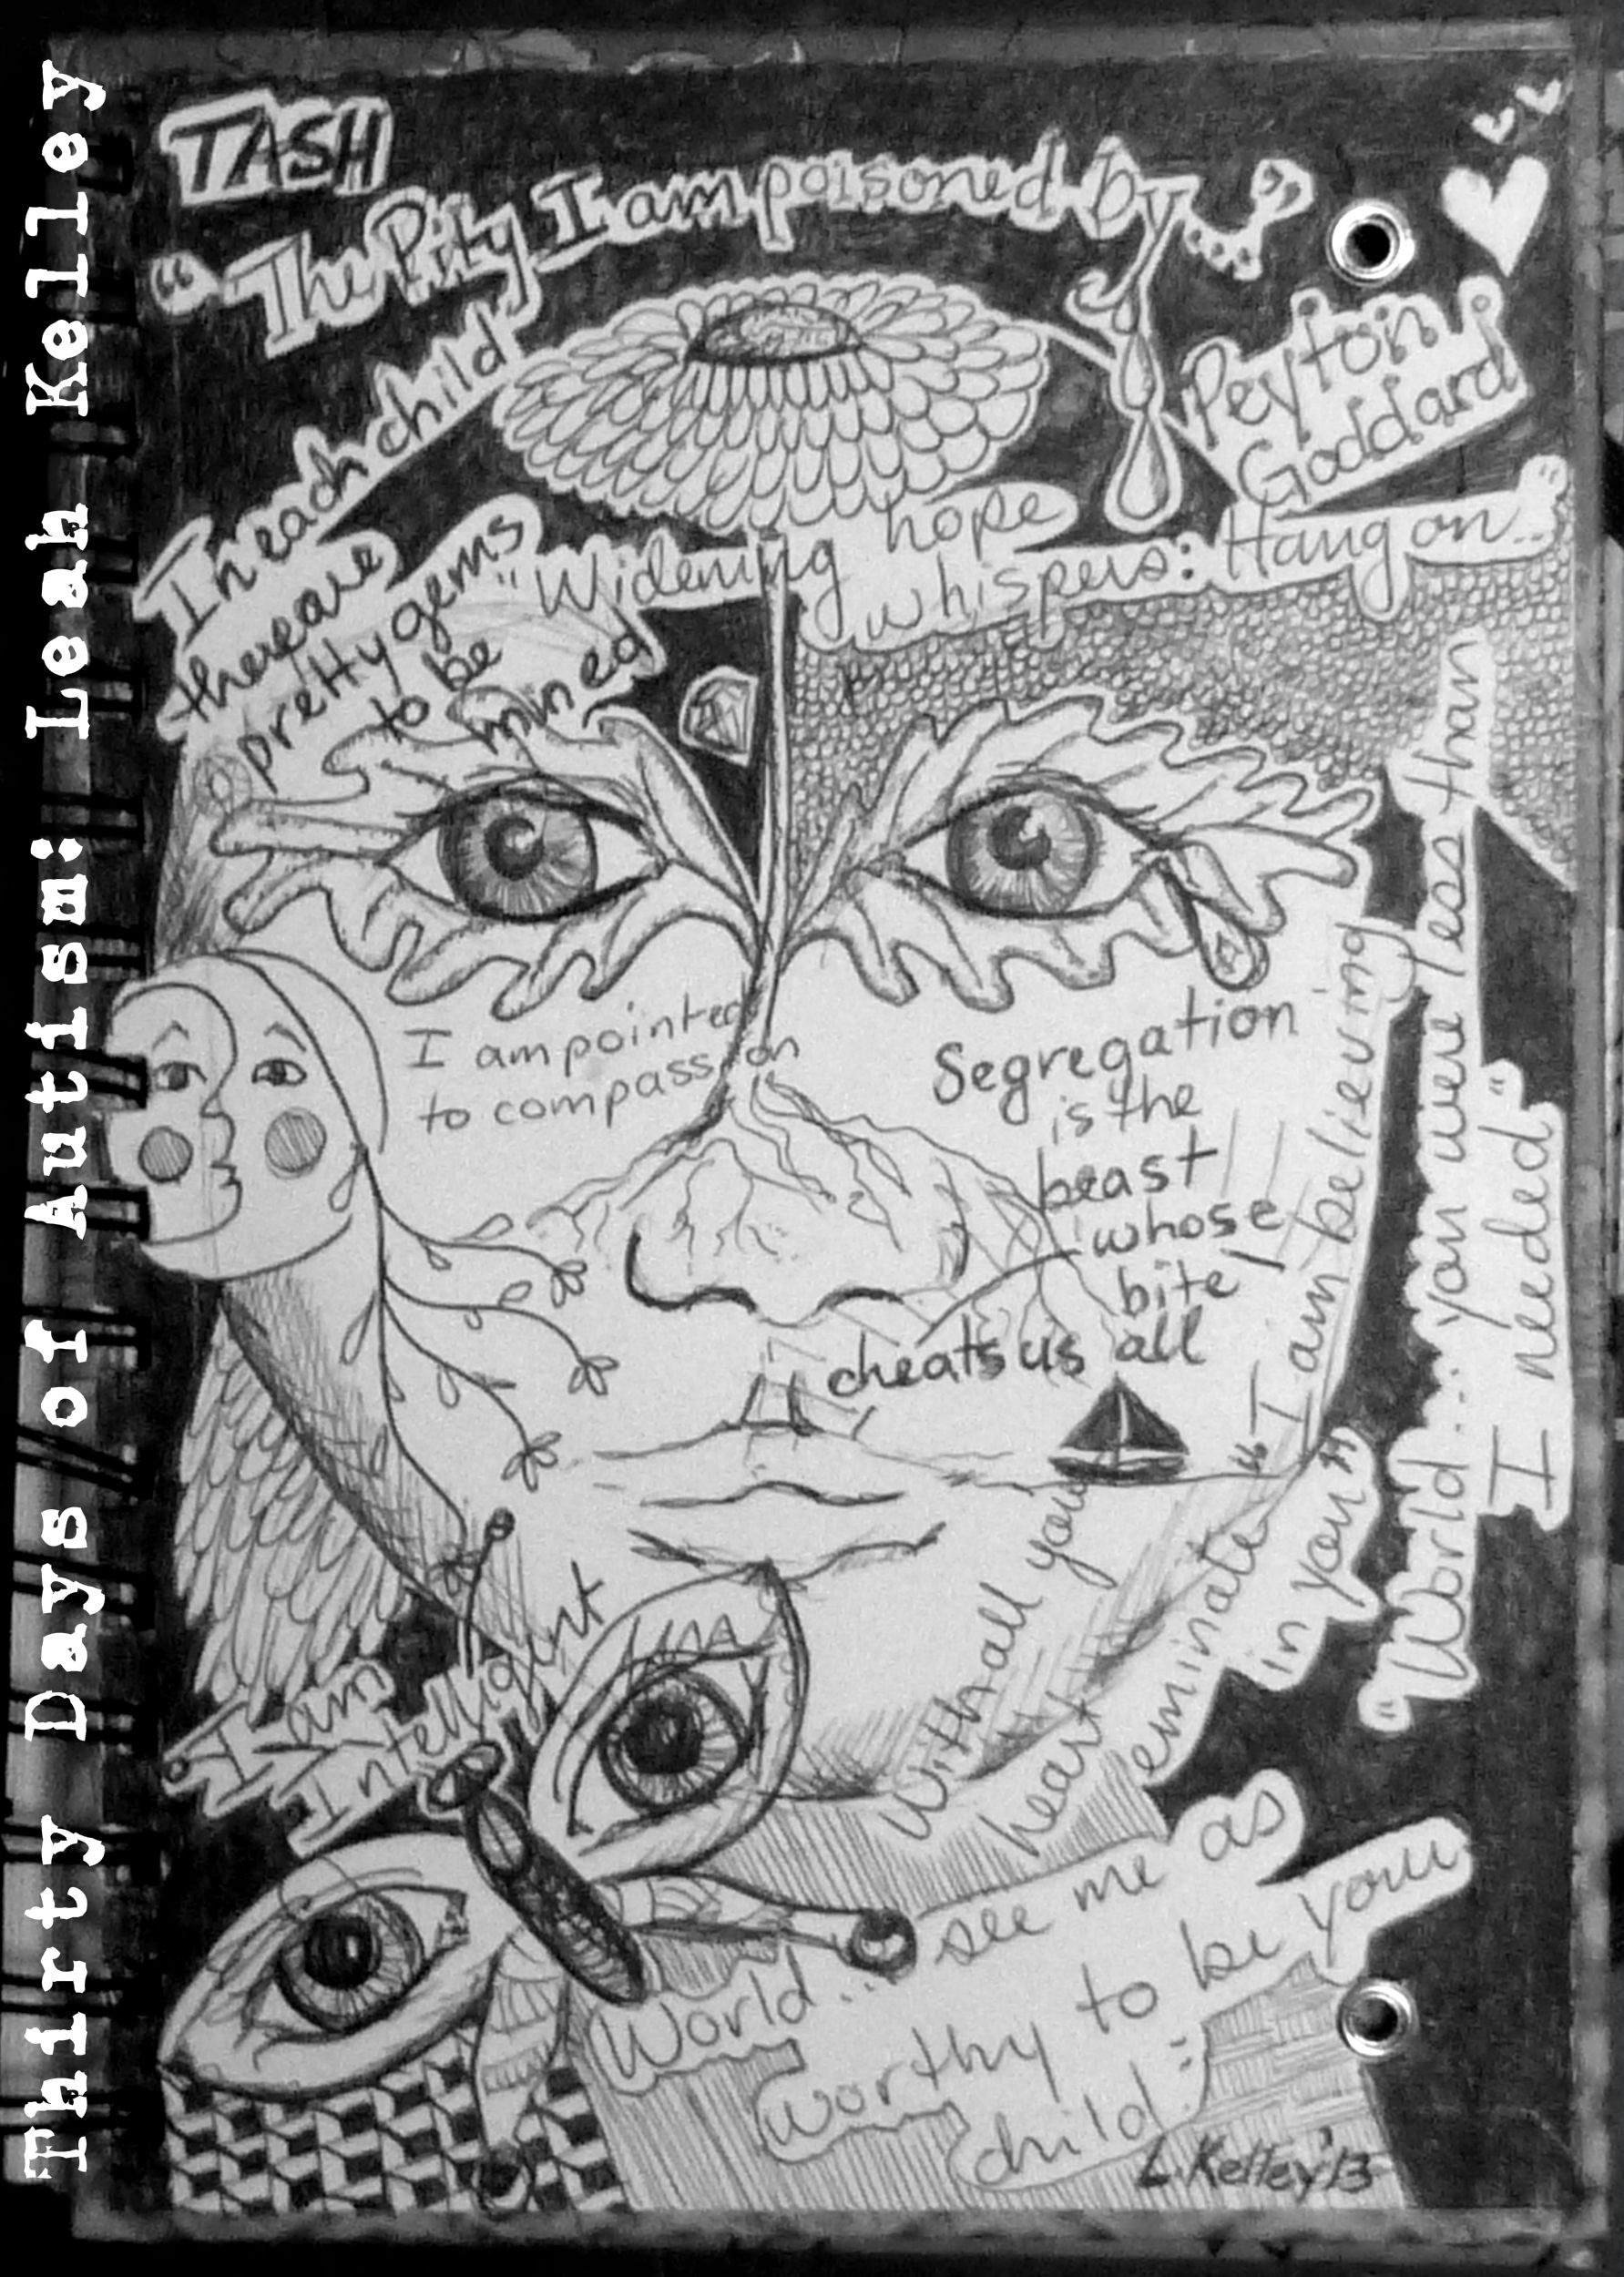 Thirty Days of Autism: Leah Kelley
TASH
"The Pity I am poisoned by...
Peyton
Goddard
In each child
there are
pretty gems
to be
mined
"Widening hope
whispers: Hang on..."
I am pointed
to compassion
Segregation
is the
beast
whose
bite
cheats us all
"World... you were less than
I needed"
"I am believing
in you"
With all your
heart
eminate
I am
Intelligent
World... see me as
worthy to be your
child.
L. Kelley '13